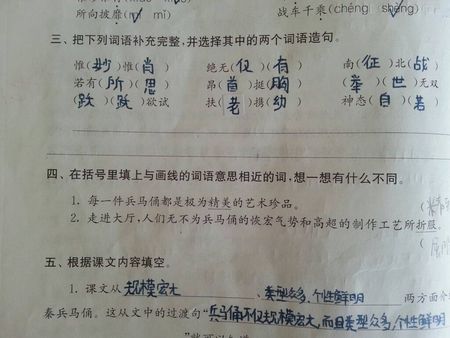 所向披靡(mǐ mí) 战车千乘(chéng shèng)
三、把下列词语补充完整,并选择其中的两个词语造句。
惟(妙)惟(肖) 绝无(仅)(有) 南(征)北(战)
若有(所)(思) 昂(首)挺(胸) (举)(世)无双
(跃)(跃)欲试 扶(老)携(幼) 神态(自)(若)
四、在括号里填上与画线的词语意思相近的词,想一想有什么不同。
1. 每一件兵马俑都是极为精美的艺术珍品。(精
2. 走进大厅,人们无不为兵马俑的恢宏气势和高超的制作工艺所折服。
(
五、根据课文内容填空。
1. 课文从规模宏大、类型众多,个性鲜明 两方面介
秦兵马俑。这从文中的过渡句"兵马俑不仅规模宏大,而且类型众多,个性鲜明